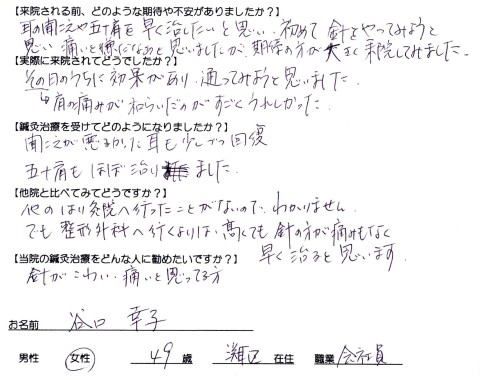 【来院される前、どのような期待や不安がありましたか？】
耳の聞こえや五十肩を早く治したいと思い、初めて針をやってみようと
思い 痛いと嫌だなぁと思いましたが、期待の方が大きく来院してみました。
【実際に来院されてどうでしたか？】
その日のうちに効果があり、通ってみようと思いました。
肩の痛みが和らいだのがすごくうれしかった。
【鍼灸治療を受けてどのようになりましたか？】
聞こえが悪かった耳も少しづつ回復
五十肩もほぼ治りました。
【他院と比べてみてどうですか？】
他のはり灸院へ行ったことがないので、わかりません。
でも整形外科へ行くよりは、高くても針の方が痛みもなく
早く治ると思います。
【当院の鍼灸治療をどんな人に勧めたいですか？】
針がこわい、痛いと思ってる方
お名前 谷口 幸子
男性 女性 49 歳 灘区 在住 職業 会社員